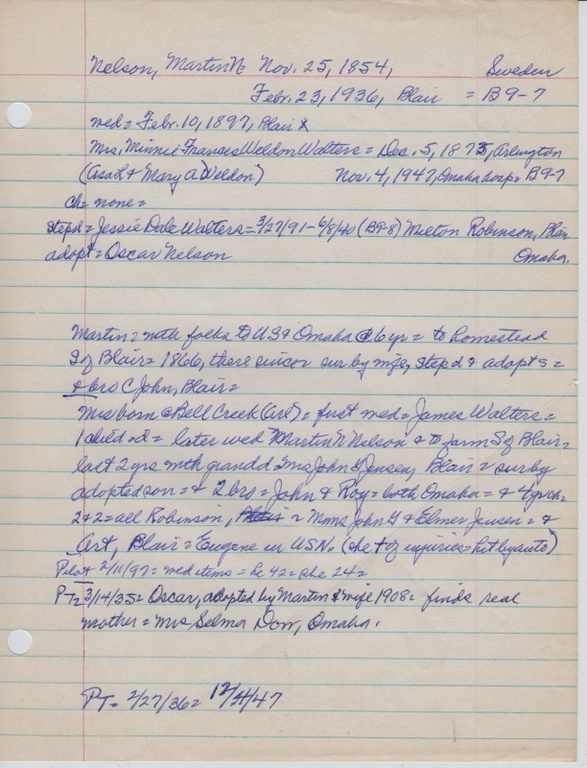 Nelson, Martin N = Nov. 25, 1854, Sweden
Febr. 23, 1936, Blair = B9-7
wed = Febr. 10, 1897, Blair
Mrs. Minnie Frances Weldon Walters = Dec. 5, 1873, Arlington
(Asa L & Mary A Weldon) Nov. 4, 1947, Omaha hosp = B9-7
ch = none =
stepd = Jessie Dale Walters = 3/27/91 - 6/8/40 (B9-8) Milton Robinson, Blair
adopt = Oscar Nelson Omaha.
Martin = with folks to US & Omaha @ 6 yr = to homestead
S of Blair = 1866, there since = sur by wife, stepd & adopt s =
& bro C John, Blair =
Mrs born @ Bell Creek (Arl) = first wed = James Walters =
1 child = d = later wed Martin N Nelson & to farm S of Blair =
last 2 yrs with grandd Mrs John G Jensen, Blair = sur by
adopted son = & 2 bros = John & Roy = both Omaha = & 4 grch =
2 & 2 = all Robinson, = Mmes John G & Elmer Jensen = &
Art, Blair = Eugene in USN. (she + of injuries = hit by auto)
Pilot 2/11/97 = wed items = he 42 = she 24 =
PT = 3/14/35 = Oscar, adopted by Martin & wife 1908 = finds real
mother = Mrs Selma Dow, Omaha.
PT = 2/27/36 = 12/4/47